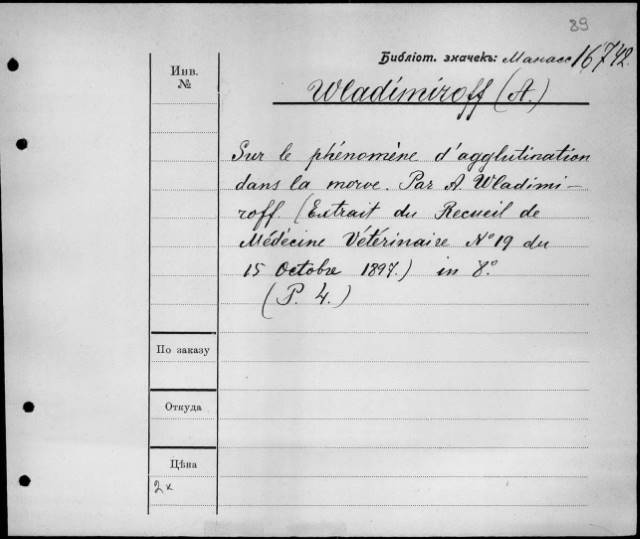 89
Библіот. значекъ: Манасс 16742
Инв.
№
Wladimiroff (A.)
Sur le phénomène d'agglutination
dans la morve. Par A. Wladimi-
roff. (Extrait du Recueil de
Médecine Vétérinaire N° 19 du
15 Octobre 1897.) in 8°.
(P. 4.)
По заказу
Откуда
Цѣна
2x